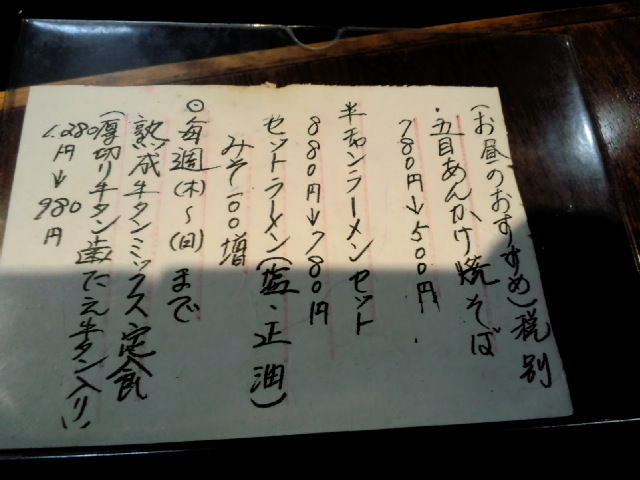 (お昼のおすすめ)税別
・五目あんかけ焼そば
780円→500円
半チャンラーメンセット
880円→780円
セットラーメン(塩・正油)
みそ100増
◎毎週(木)~(日)まで
熟成牛タンミックス定食
(厚切り牛タン歯ごたえ牛タン入り)
1.280円→980円